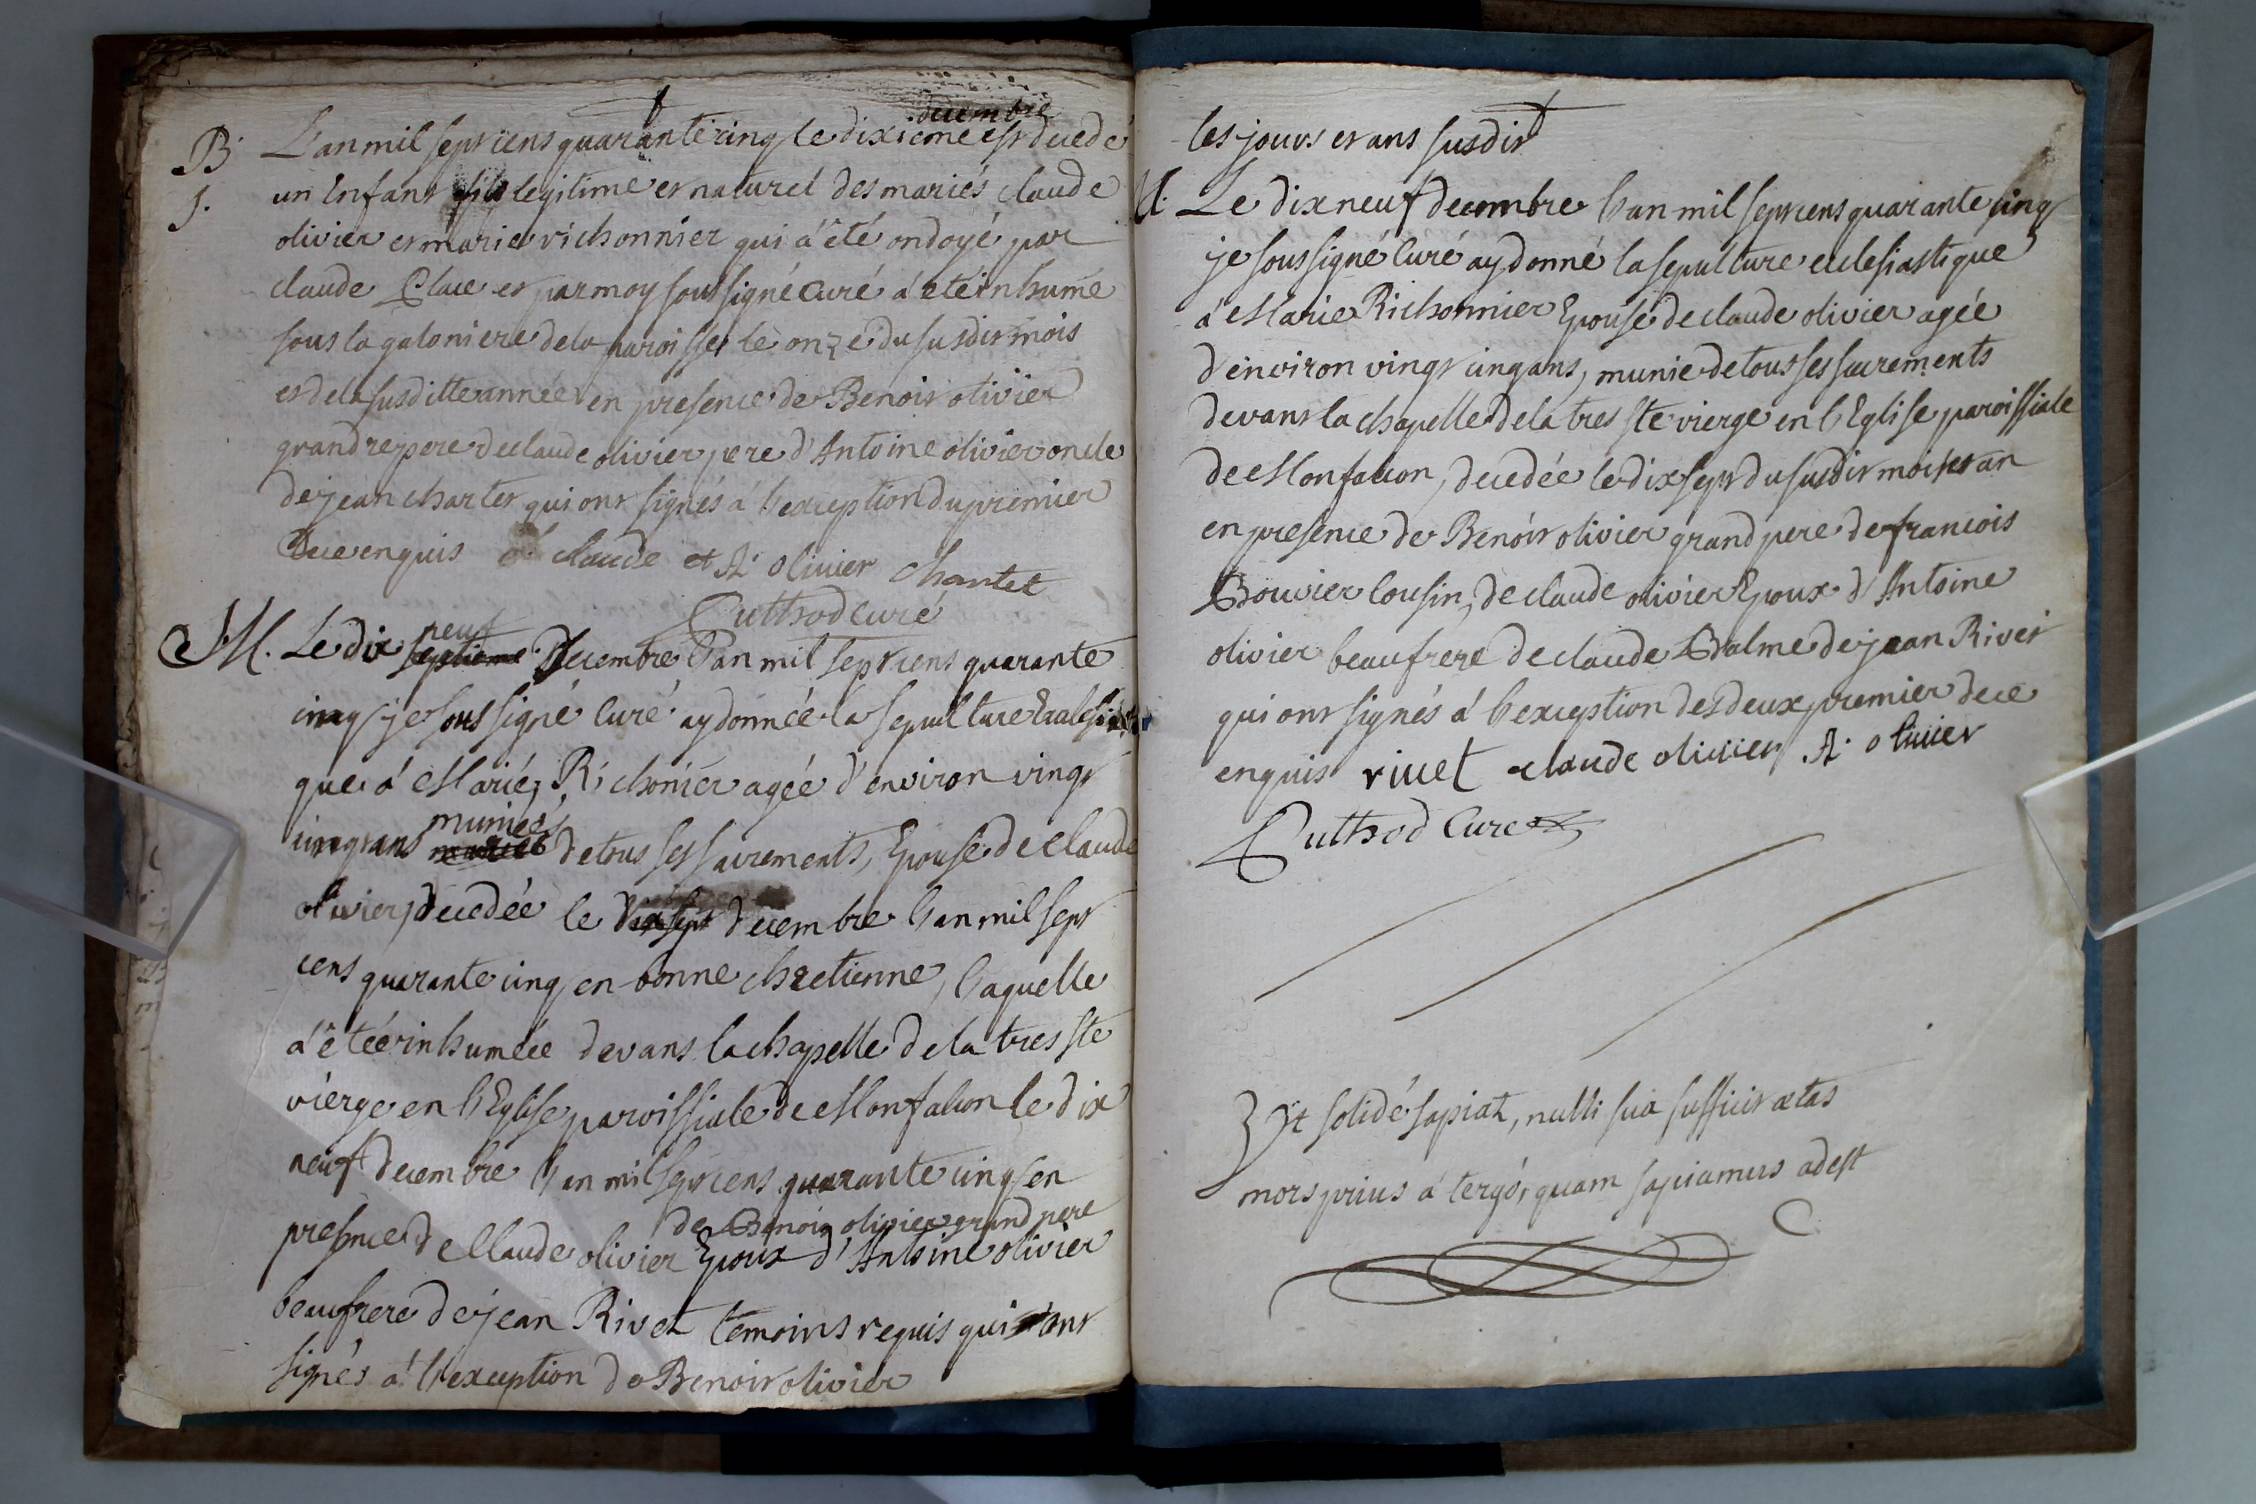 decembre
B. L'an mil sept cens quarante cinq le dixieme est decedé
J. un Enfant fils legitime et naturel des mariés claude
olivier et marie richonnier qui a été ondoyé par
claude Place et par moy soussigné Curé a été inhumé
sous la galoniere de la paroisse le onze du susdit mois
et de la susditte année en presence de Benoit olivier
grand repere de claude olivier pere d'Antoine olivier oncle
de jean chartet qui ont signés á l'exception du premier
de ce enquis claude et A. olivier chartet
Cuthod Curé
neuf
M. Le dix septieme Decembre l'an mil sept cens quarante
cinq je soussigné Curé ay donnée la sepulture Ecclesiasti
que á Marie Richonier agée d'environ vingt
muniée
cinq ans de tous ses sacrements, Epouse de Claude
olivier, decedée le dix sept decembre l'an mil sept
cens quarante cinq en bonne chretienne, laquelle
a été inhumée devant la chapelle de la tres ste
vierge en l'Eglise paroissiale de Monfalcon le dix
neuf decembre l'an mil sept cens quarante cinq en
de Benoit olivier grand pere
presence de Claude olivier Epoux d'Antoine olivier
beaufrere de jean Rivet temoins requis qui ont
signés á l'exception de Benoit olivier
les jours et ans susdit
M. Le dix neuf decembre l'an mil sept cens quarante cinq
je soussigné Curé ay donné la sepulture ecclesiastique
á Marie Richonnier Epouse de claude olivier agée
d'environ vingt cinq ans, munie de tous ses sacrements
devant la chapelle de la tres ste vierge en l'Eglise paroissiale
de Monfalcon, decedée le dix sept du susdit mois et an
en presence de Benoit olivier grand pere de francois
Bouvier Cousin, de claude olivier Epoux d'Antoine
olivier beaufrere de claude Balme de jean Rivet
qui ont signés á l'exception des deux premier de ce
enquis rivet claude olivier A. olivier
Cuthod Curé
Ut solidé sapiat, nulli sua sufficit ætas
mors prius á tergó, quam sapiamus adest